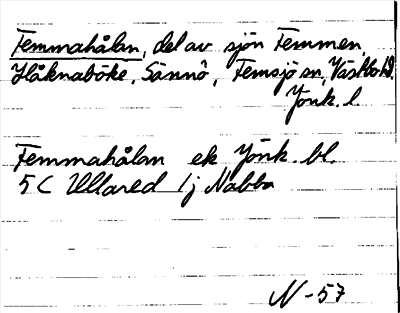 Femmahålan, del av sjön Femmen,
Yläknaböke, Sännö, Femsjö sn, Västbo hd.
Jönk. l.
Femmahålan ek Jönk. bl.
5 C Ullared 1 j Nabba
N-57